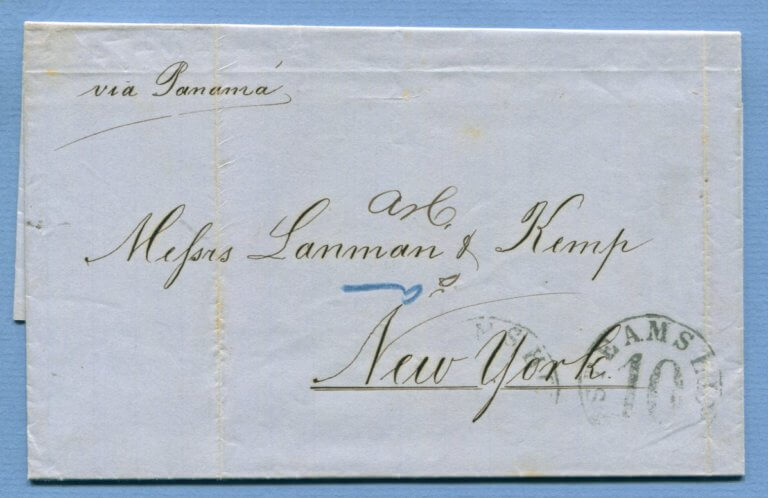 via Panamá
Messrs Lanman & Kemp
New York.
STEAMSHIP
10